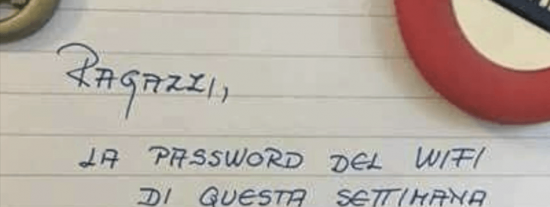 RAGAZZI,
LA PASSWORD DEL WIFI
DI QUESTA SETTIMANA